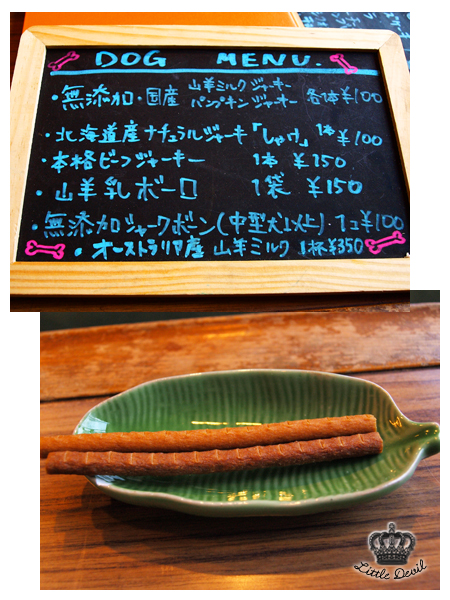 DOG MENU.
・無添加・国産 山羊ミルクジャーキー
パンプキンジャーキー 各1本¥100
・北海道産ナチュラルジャーキ「しゃけ」1本 ¥100
・本格ビーフジャーキー 1本 ¥150
・山羊乳ボーロ 1袋 ¥150
・無添加ジャークボーン(中型犬以上)・1コ¥100
・オーストラリア産 山羊ミルク 1杯¥350
Little Devil